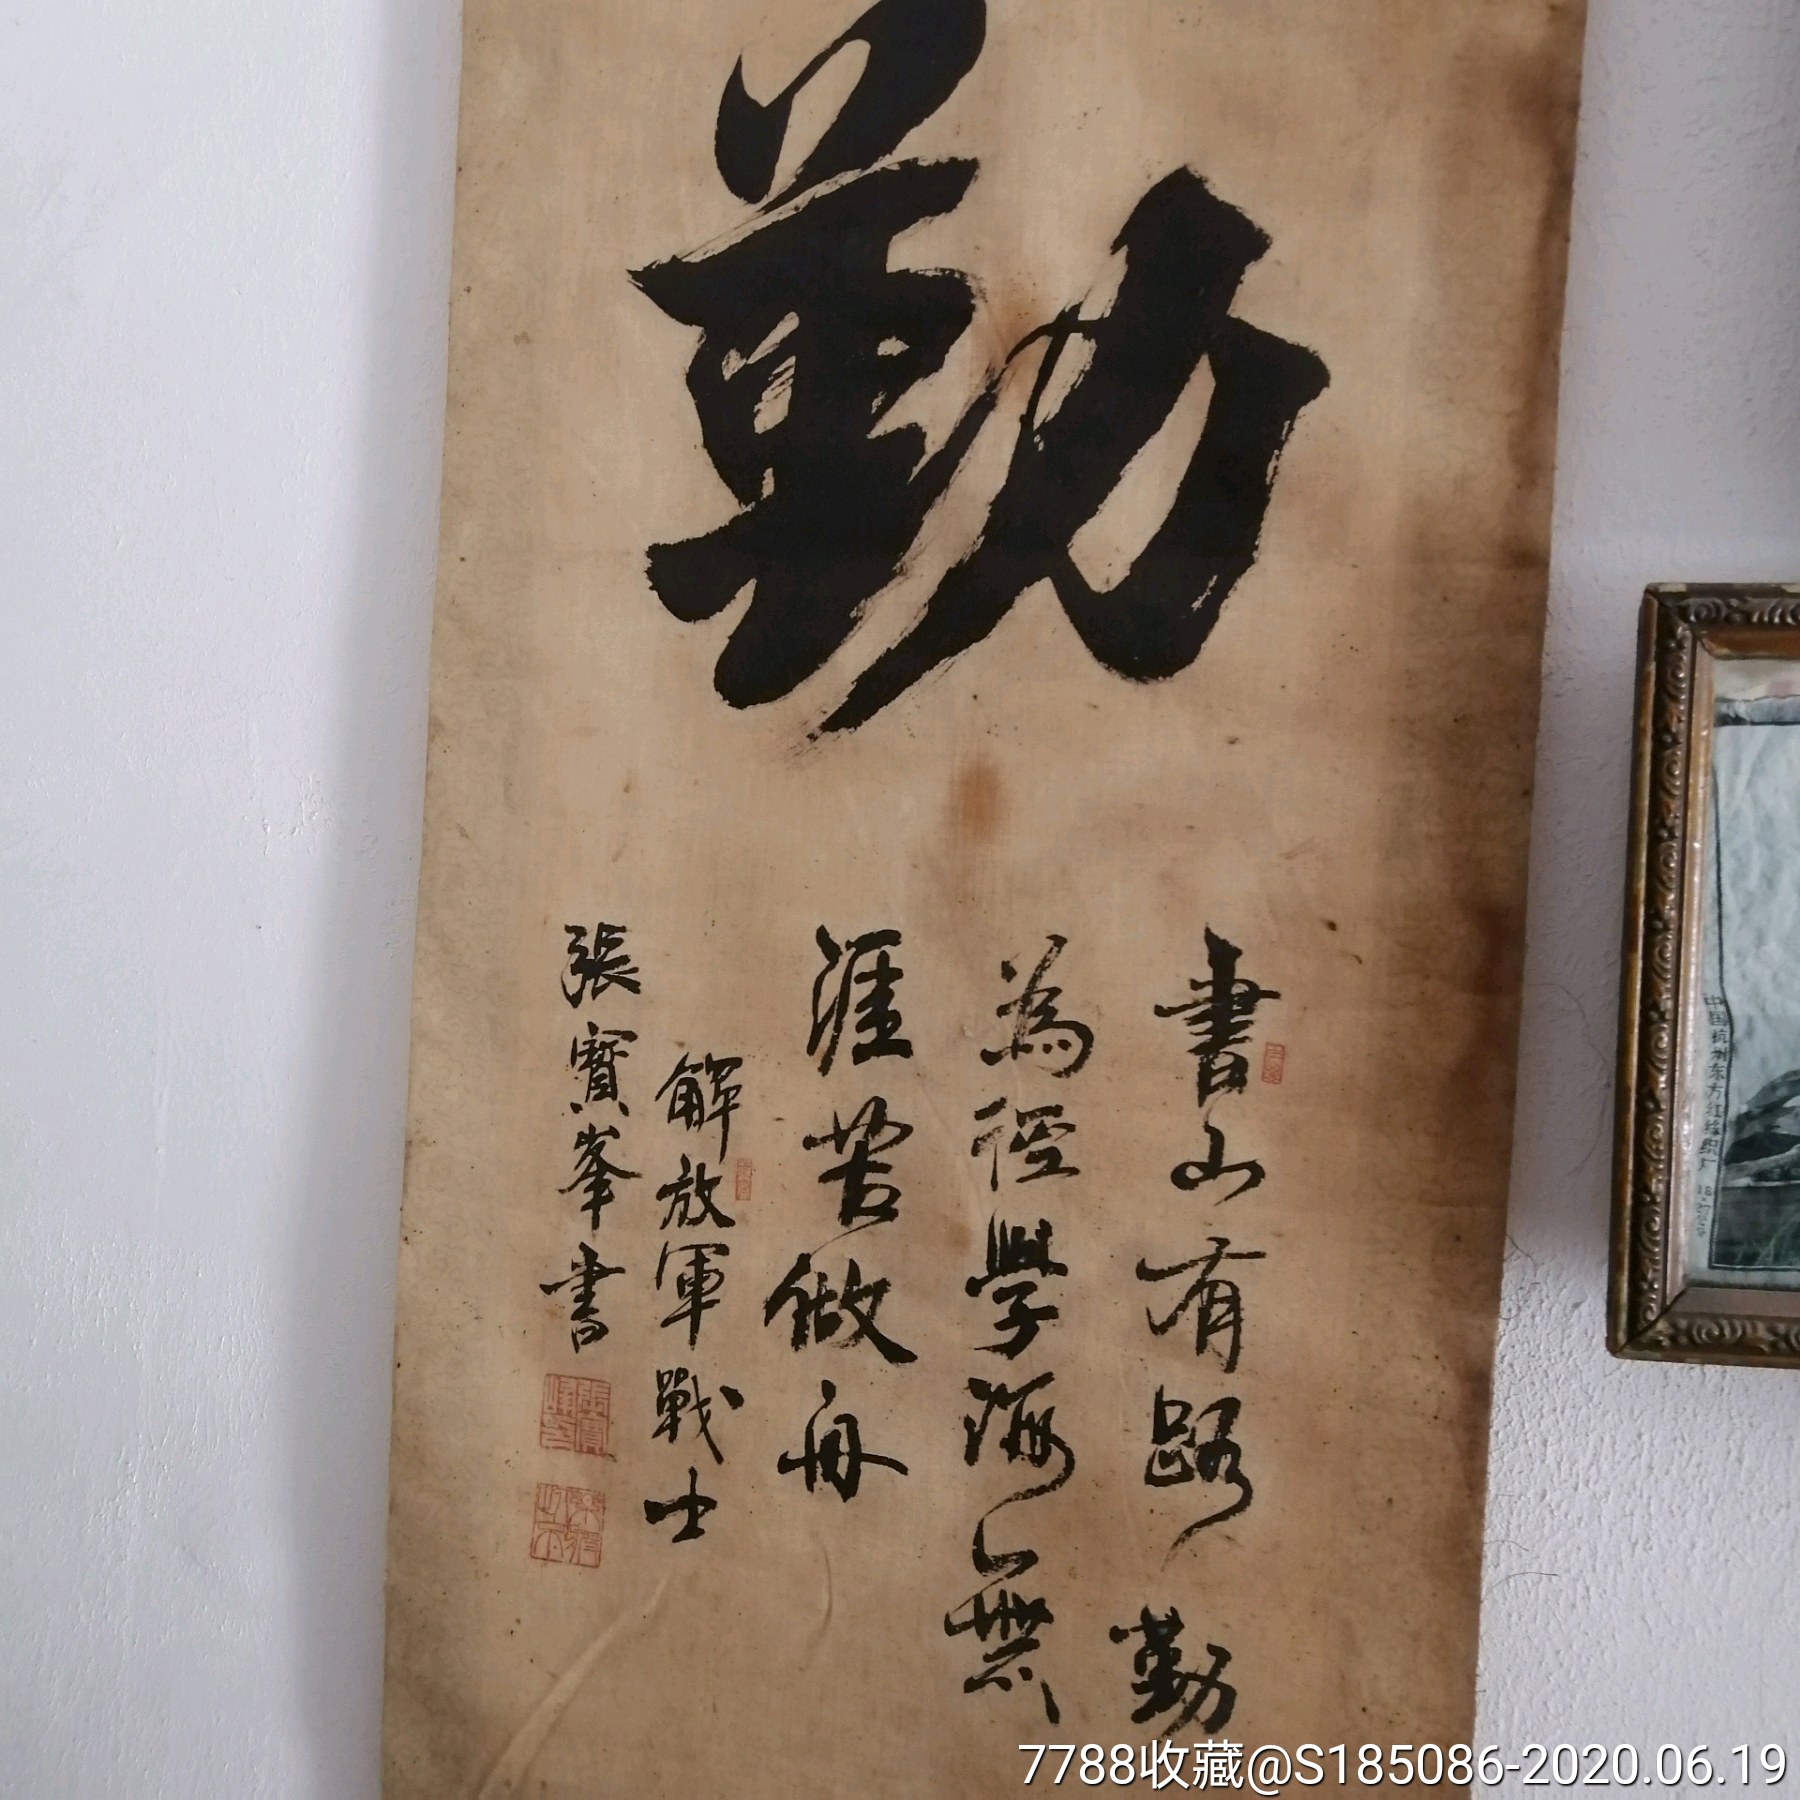 勤
書山有路勤
為徑學海無
涯苦做舟
解放軍戰士
張寶峯書
中国杭州东方红丝织厂
7788收藏@S185086-2020.06.19